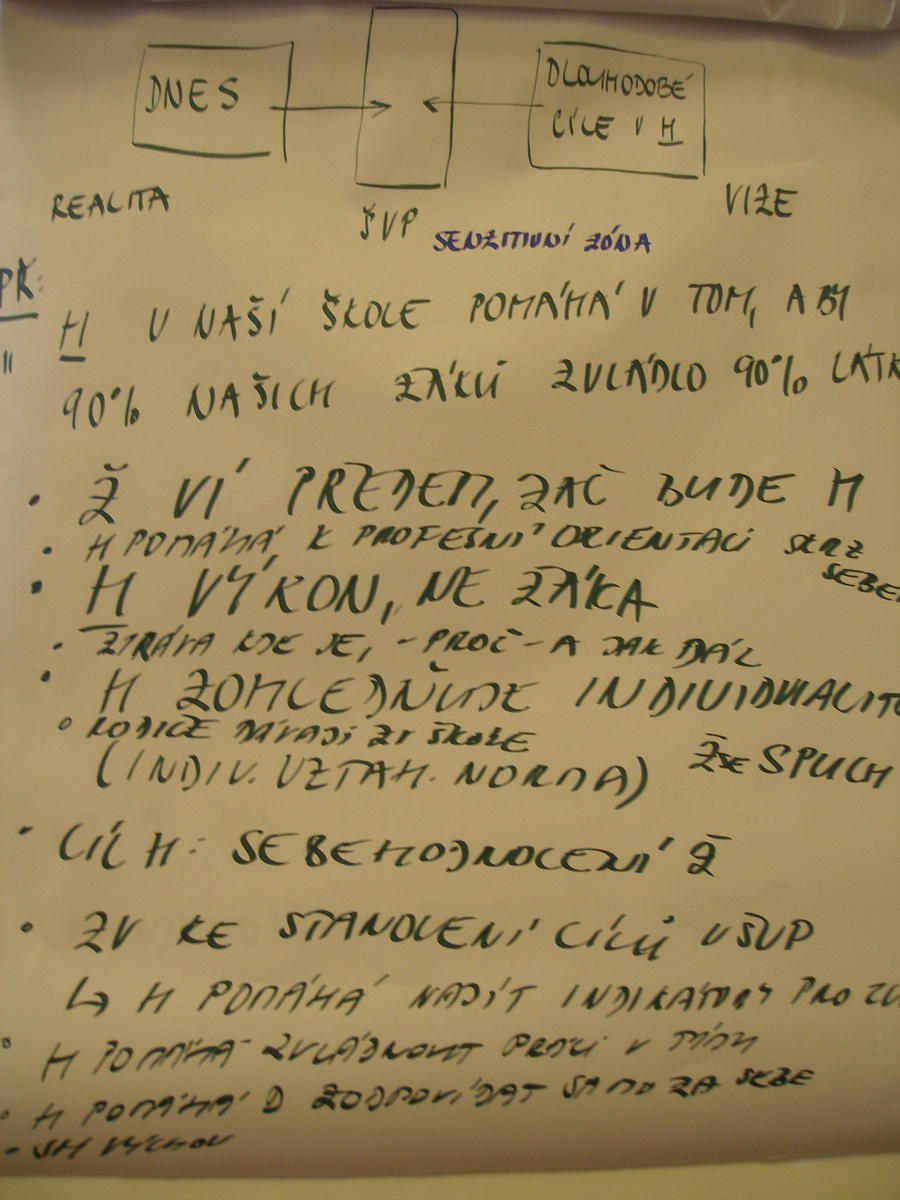 DNES
DLOUHODOBÉ
CÍLE V H
REALITA
ŠVP
VIZE
SENZITIVNÍ ZÓNA
PŘ:
H V NAŠÍ ŠKOLE POMÁHÁ V TOM, ABY
90% NAŠICH ŽÁKŮ ZVLÁDLO 90% LÁTK
• Ž VÍ PŘEDEM, ZAČ BUDE H
• H POMÁHÁ K PROFESNÍ ORIENTACI SKRZ
SEBE
• H VÝKON, NE ŽÁKA
• ZPRÁVA KDE JE, - PROČ - A JAK DÁL
• H ZOHLEDŇUJE INDIVIDUALITU
° RODIČE DÁVAJÍ ZV ŠKOLE
(INDIV. VZTAH. NORMA) Ž SE SPUCH
• CÍL H: SEBEHODNOCENÍ Ž
• ZV KE STANOVENÍ CÍLŮ V ŠVP
↳ H POMÁHÁ NAJÍT INDIKÁTORY PRO ZV
° H POMÁHÁ ZVLÁDNOUT PRÁCI V TÝMU
° H POMÁHÁ D ZODPOVÍDAT SAMO ZA SEBE